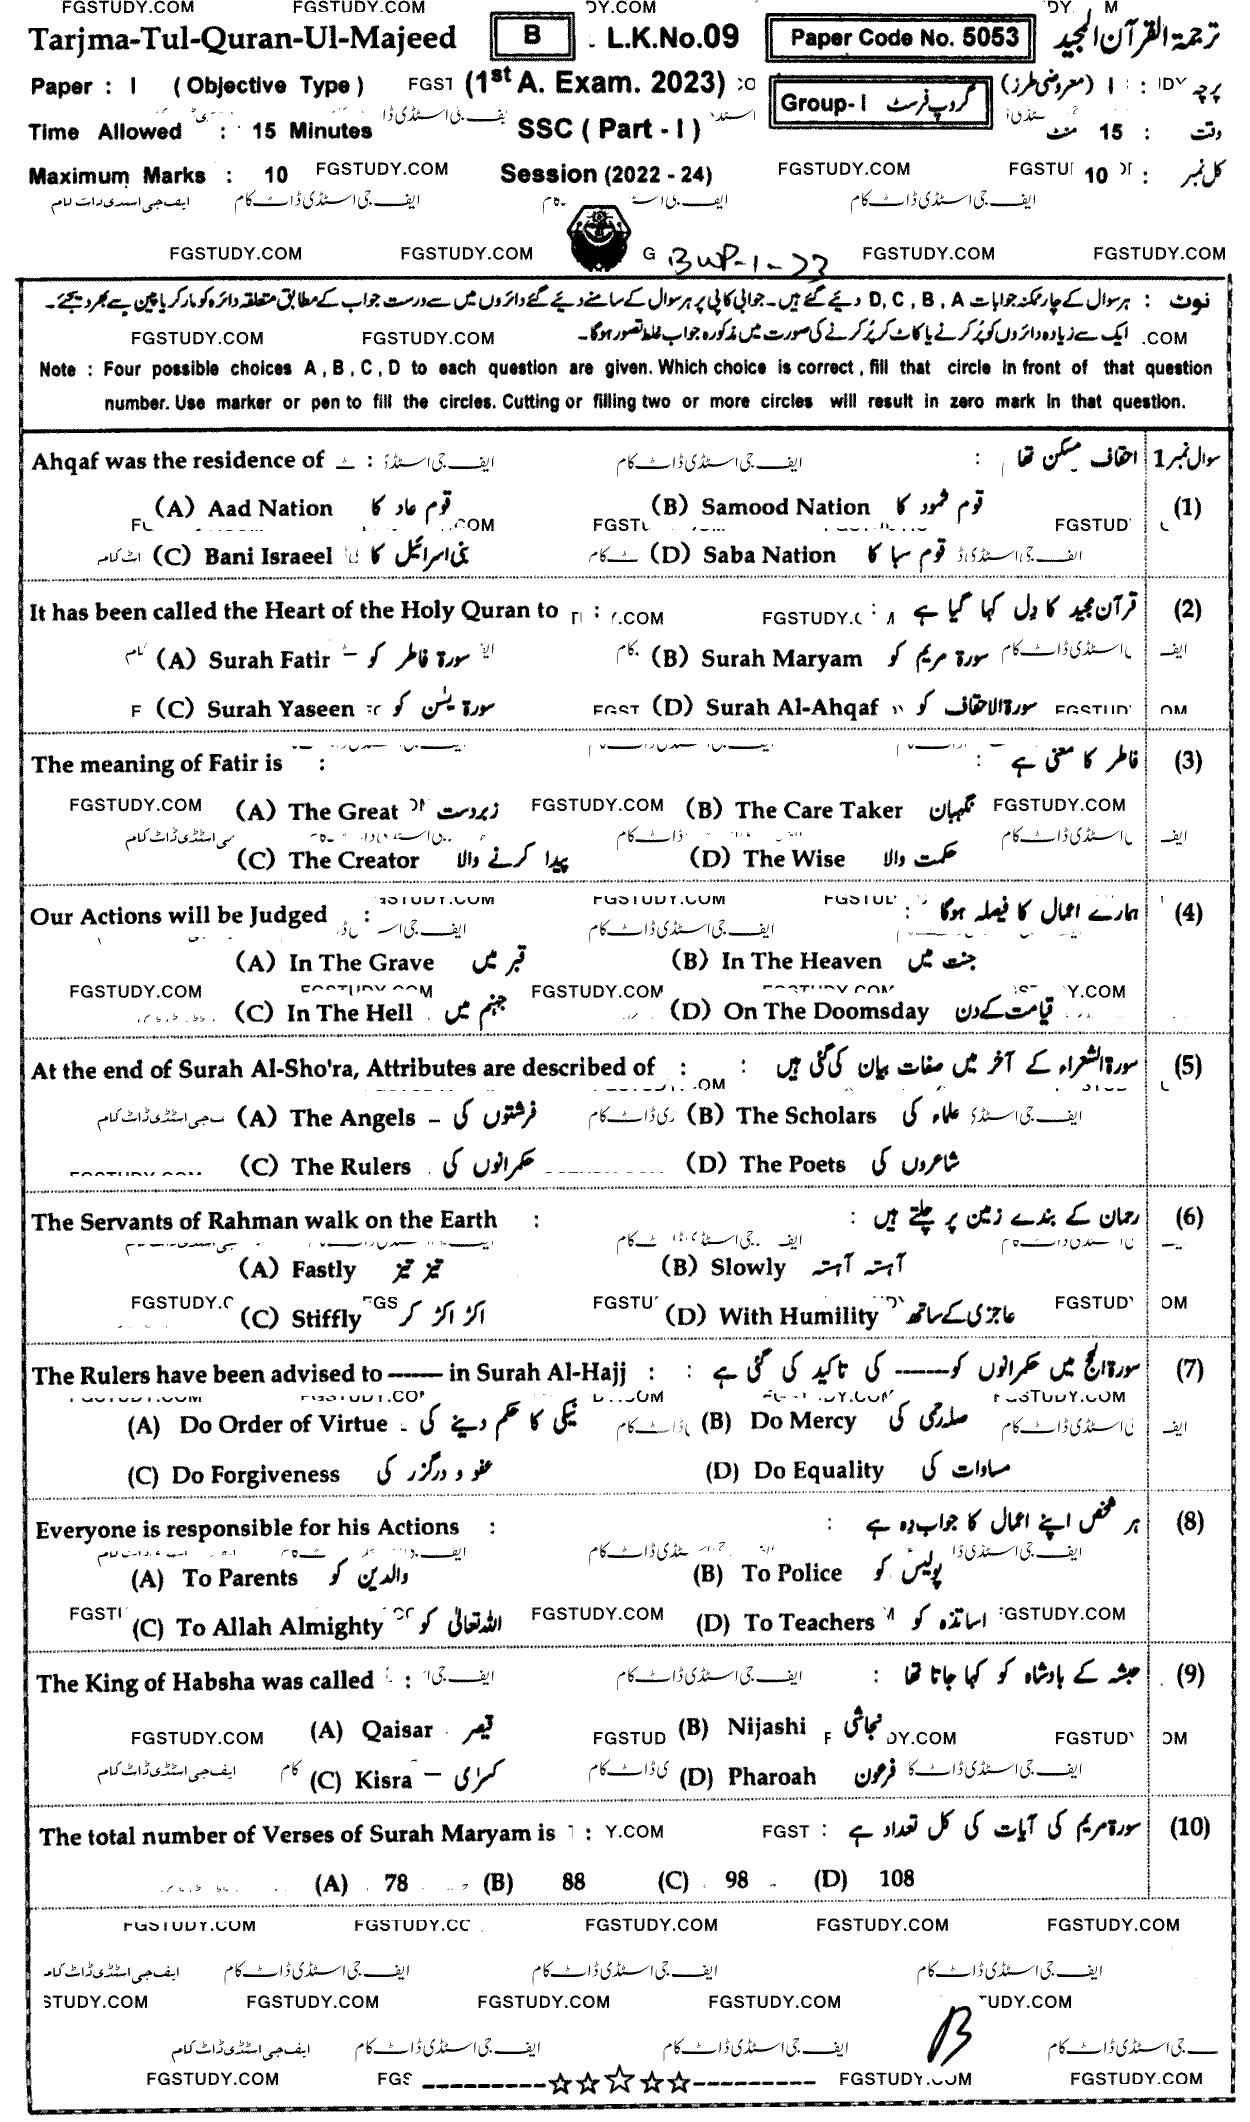 FGSTUDY.COM FGSTUDY.COM DY.COM DY. M
Tarjma-Tul-Quran-Ul-Majeed B L.K.No.09 Paper Code No. 5053 ترجمۃ القرآن المجید
Paper : I ( Objective Type ) FGST (1st A. Exam. 2023) CO Group- I گروپ فرسٹ پرچہ : I (معروضی طرز)
Time Allowed : 15 Minutes SSC ( Part - I ) وقت : 15 منٹ
Maximum Marks : 10 FGSTUDY.COM Session (2022 - 24) FGSTUDY.COM کل نمبر : 10
ایف جی اسٹڈی ڈاٹ کام ایف جی اسٹڈی ڈاٹ کام
FGSTUDY.COM FGSTUDY.COM G BWP-1-23 FGSTUDY.COM FGSTUDY.COM
نوٹ : ہر سوال کے چار ممکنہ جوابات D, C, B, A دیئے گئے ہیں۔ جوابی کاپی پر ہر سوال کے سامنے دیئے گئے دائروں میں سے درست جواب کے مطابق متعلقہ دائرہ کو مارکر یا پین سے بھر دیجئے۔
ایک سے زیادہ دائروں کو پُر کرنے یا کاٹ کر پُر کرنے کی صورت میں مذکورہ جواب غلط تصور ہوگا۔
FGSTUDY.COM FGSTUDY.COM .COM
Note : Four possible choices A , B , C , D to each question are given. Which choice is correct , fill that circle in front of that question
number. Use marker or pen to fill the circles. Cutting or filling two or more circles will result in zero mark in that question.
Ahqaf was the residence of : احقاف مسکن تھا : سوال نمبر 1
(A) Aad Nation قوم عاد کا (B) Samood Nation قوم ثمود کا (1)
(C) Bani Israeel بنی اسرائیل کا (D) Saba Nation قوم سبا کا
It has been called the Heart of the Holy Quran to : قرآن مجید کا دل کہا گیا ہے : (2)
(A) Surah Fatir سورۃ فاطر کو (B) Surah Maryam سورۃ مریم کو
(C) Surah Yaseen سورۃ یٰسن کو (D) Surah Al-Ahqaf سورۃ الاحقاف کو
The meaning of Fatir is : فاطر کا معنی ہے : (3)
FGSTUDY.COM (A) The Great زبردست FGSTUDY.COM (B) The Care Taker نگہبان FGSTUDY.COM
(C) The Creator پیدا کرنے والا (D) The Wise حکمت والا
Our Actions will be Judged : ہمارے اعمال کا فیصلہ ہوگا : (4)
(A) In The Grave قبر میں (B) In The Heaven جنت میں
FGSTUDY.COM FGSTUDY.COM
(C) In The Hell جہنم میں (D) On The Doomsday قیامت کے دن
At the end of Surah Al-Sho'ra, Attributes are described of : سورۃ الشعراء کے آخر میں صفات بیان کی گئی ہیں : (5)
(A) The Angels فرشتوں کی (B) The Scholars علماء کی
(C) The Rulers حکمرانوں کی (D) The Poets شاعروں کی
The Servants of Rahman walk on the Earth : رحمان کے بندے زمین پر چلتے ہیں : (6)
(A) Fastly تیز تیز (B) Slowly آہستہ آہستہ
(C) Stiffly اکڑ اکڑ کر (D) With Humility عاجزی کے ساتھ
The Rulers have been advised to ------ in Surah Al-Hajj : سورۃ الحج میں حکمرانوں کو ------ کی تاکید کی گئی ہے : (7)
(A) Do Order of Virtue نیکی کا حکم دینے کی (B) Do Mercy صلہ رحمی کی
(C) Do Forgiveness عفو و درگزر کی (D) Do Equality مساوات کی
Everyone is responsible for his Actions : ہر شخص اپنے اعمال کا جواب دہ ہے : (8)
(A) To Parents والدین کو (B) To Police پولیس کو
(C) To Allah Almighty اللہ تعالیٰ کو FGSTUDY.COM (D) To Teachers اساتذہ کو FGSTUDY.COM
The King of Habsha was called : حبشہ کے بادشاہ کو کہا جاتا تھا : (9)
FGSTUDY.COM (A) Qaisar قیصر (B) Nijashi نجاشی
(C) Kisra کسرٰی (D) Pharoah فرعون
The total number of Verses of Surah Maryam is : سورۃ مریم کی آیات کی کل تعداد ہے : (10)
(A) 78 (B) 88 (C) 98 (D) 108
FGSTUDY.COM FGSTUDY.CC FGSTUDY.COM FGSTUDY.COM FGSTUDY.COM
ایف جی اسٹڈی ڈاٹ کام ایف جی اسٹڈی ڈاٹ کام ایف جی اسٹڈی ڈاٹ کام ایف جی اسٹڈی ڈاٹ کام
STUDY.COM FGSTUDY.COM FGSTUDY.COM FGSTUDY.COM TUDY.COM
B
ایف جی اسٹڈی ڈاٹ کام ایف جی اسٹڈی ڈاٹ کام ایف جی اسٹڈی ڈاٹ کام
FGSTUDY.COM FGS ---------☆☆☆☆☆--------- FGSTUDY.COM FGSTUDY.COM